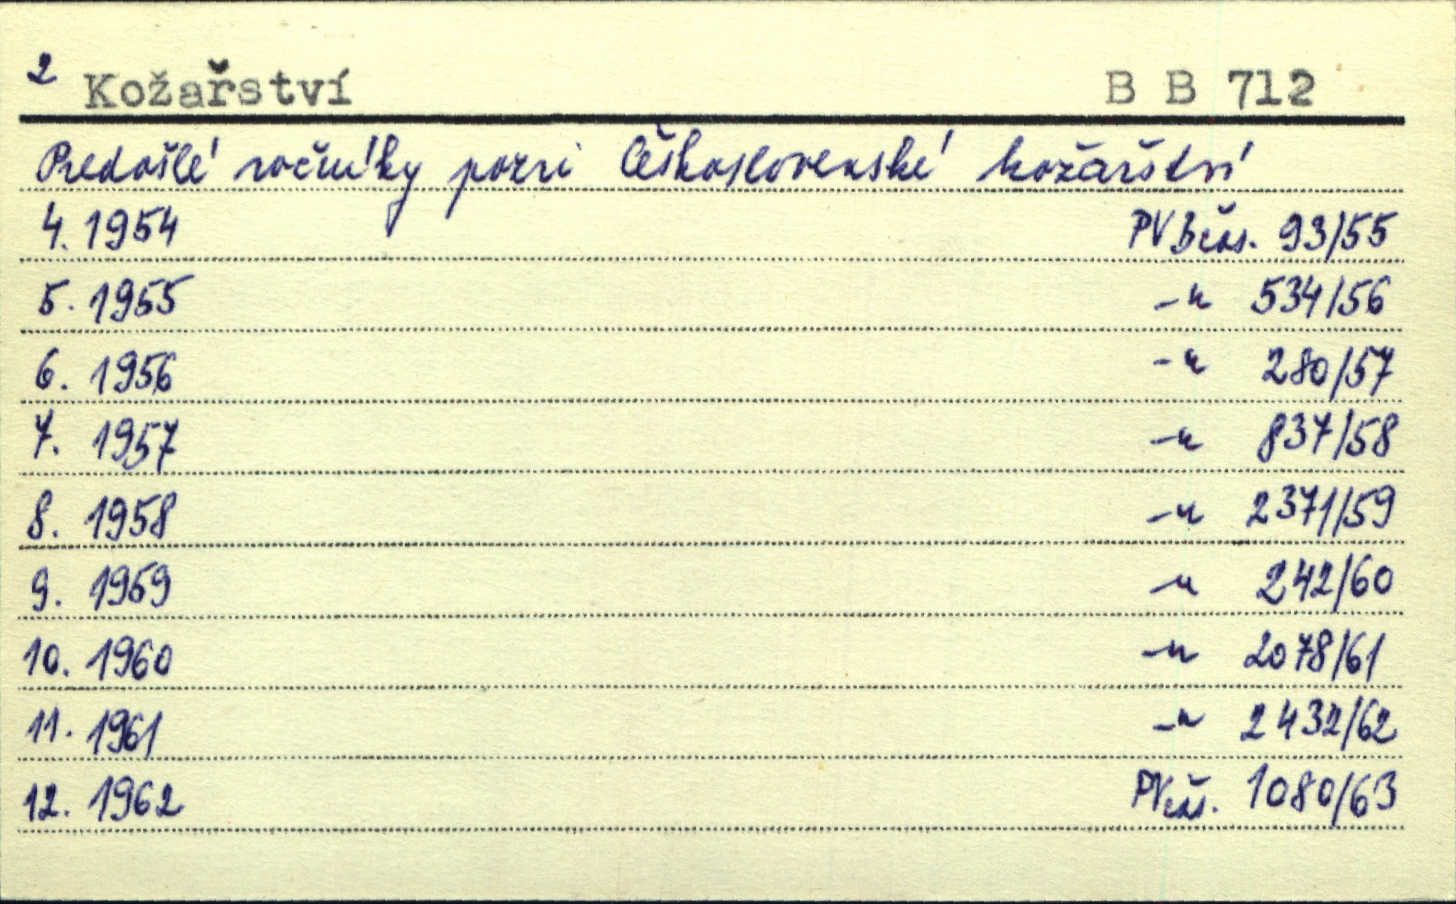 2 Kožařství B B 712
Predošlé ročníky pozri Československé kožařství
4. 1954 PV Bčas. 93/55
5. 1955 -"- 534/56
6. 1956 -"- 280/57
7. 1957 -"- 837/58
8. 1958 -"- 2371/59
9. 1959 -"- 242/60
10. 1960 -"- 2078/61
11. 1961 -"- 2432/62
12. 1962 PVčas. 1080/63